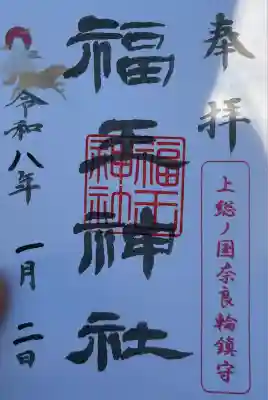 奉拝
上総ノ国奈良輪鎮守
福王神社
福王神社
令和八年 一月 二日